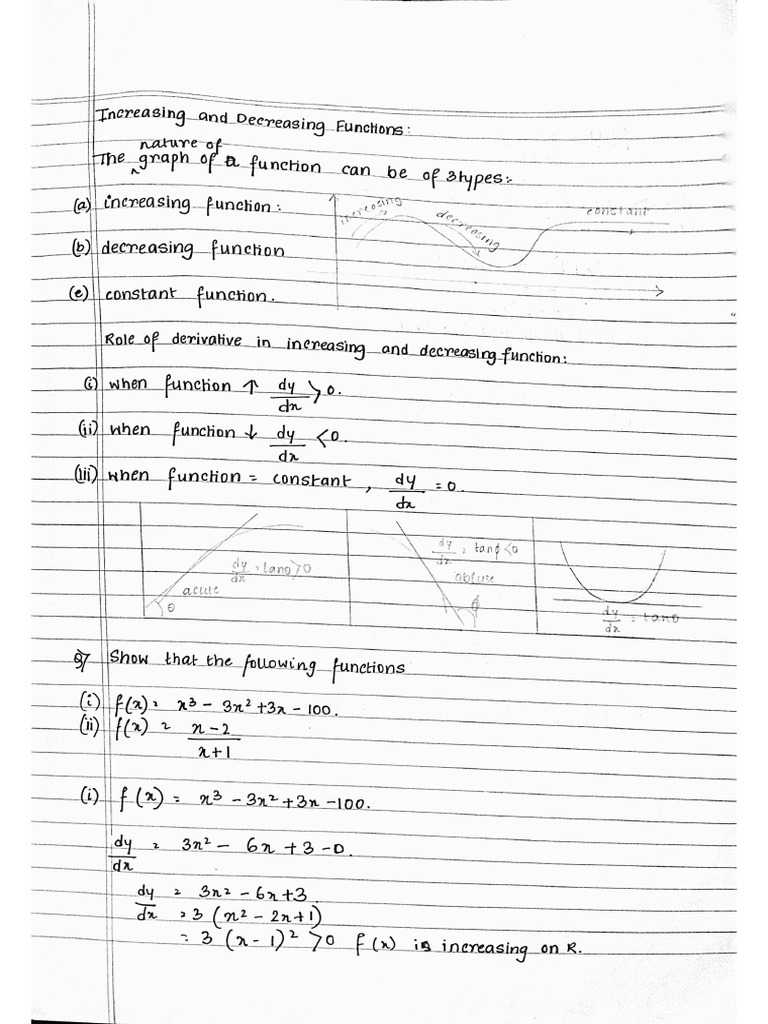 Increasing and Decreasing Functions:
nature of
The ^ graph of a function can be of 3types:-
(a) increasing function:
increasing
decreasing
constant
(b) decreasing function
(e) constant function.
Role of derivative in increasing and decreasing function:
(i) when function ↑ dy/dx > 0.
(ii) when function ↓ dy/dx < 0.
(iii) when function = constant, dy/dx = 0.
dy/dx = tanθ > 0
acute
θ
dy/dx = tanϕ < 0
obtuse
ϕ
dy/dx = tanθ
Q7 Show that the following functions
(i) f(x) = x³ - 3x² + 3x - 100.
(ii) f(x) = x-2/x+1
(i) f(x) = x³ - 3x² + 3x - 100.
dy/dx = 3x² - 6x + 3 - 0.
dy/dx = 3x² - 6x + 3
= 3 (x² - 2x + 1)
= 3 (x - 1)² > 0 f(x) is increasing on R.